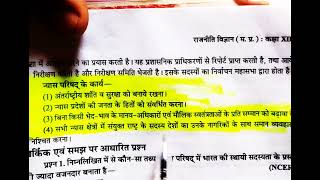 राजनीति विज्ञान ( म. प्र. ) : कक्षा XII
करने का प्रयास करता है। यह प्रशासनिक प्राधिकरणों से रिपोर्ट प्राप्त करती है, तथा
निरीक्षण करती है और निरीक्षण समिति भेजती है। इसके सदस्यों का निर्वाचन महासभा द्वारा होता है
न्यास परिषद् के कार्य—
(1) अंतर्राष्ट्रीय शांति व सुरक्षा को बनाये रखना।
(2) न्यास प्रदेशों की जनता के हितों को संवर्धित करना।
(3) बिना किसी भेद-भाव के मानव-अधिकारों एवं मौलिक स्वतंत्रताओं के प्रति सम्मान को बढ़ावा
(4) सभी न्यास क्षेत्रों में संयुक्त राष्ट्र के सदस्य देशों का उनके नागरिकों के साथ समान व्यवहार
तार्किक एवं समझ पर आधारित प्रश्न
प्रश्न 1. निम्नलिखित में से कौन-सा तथ्य परिषद् में भारत की स्थायी सदस्यता के
ज्यादा वजनदार बनाता है— (NCER